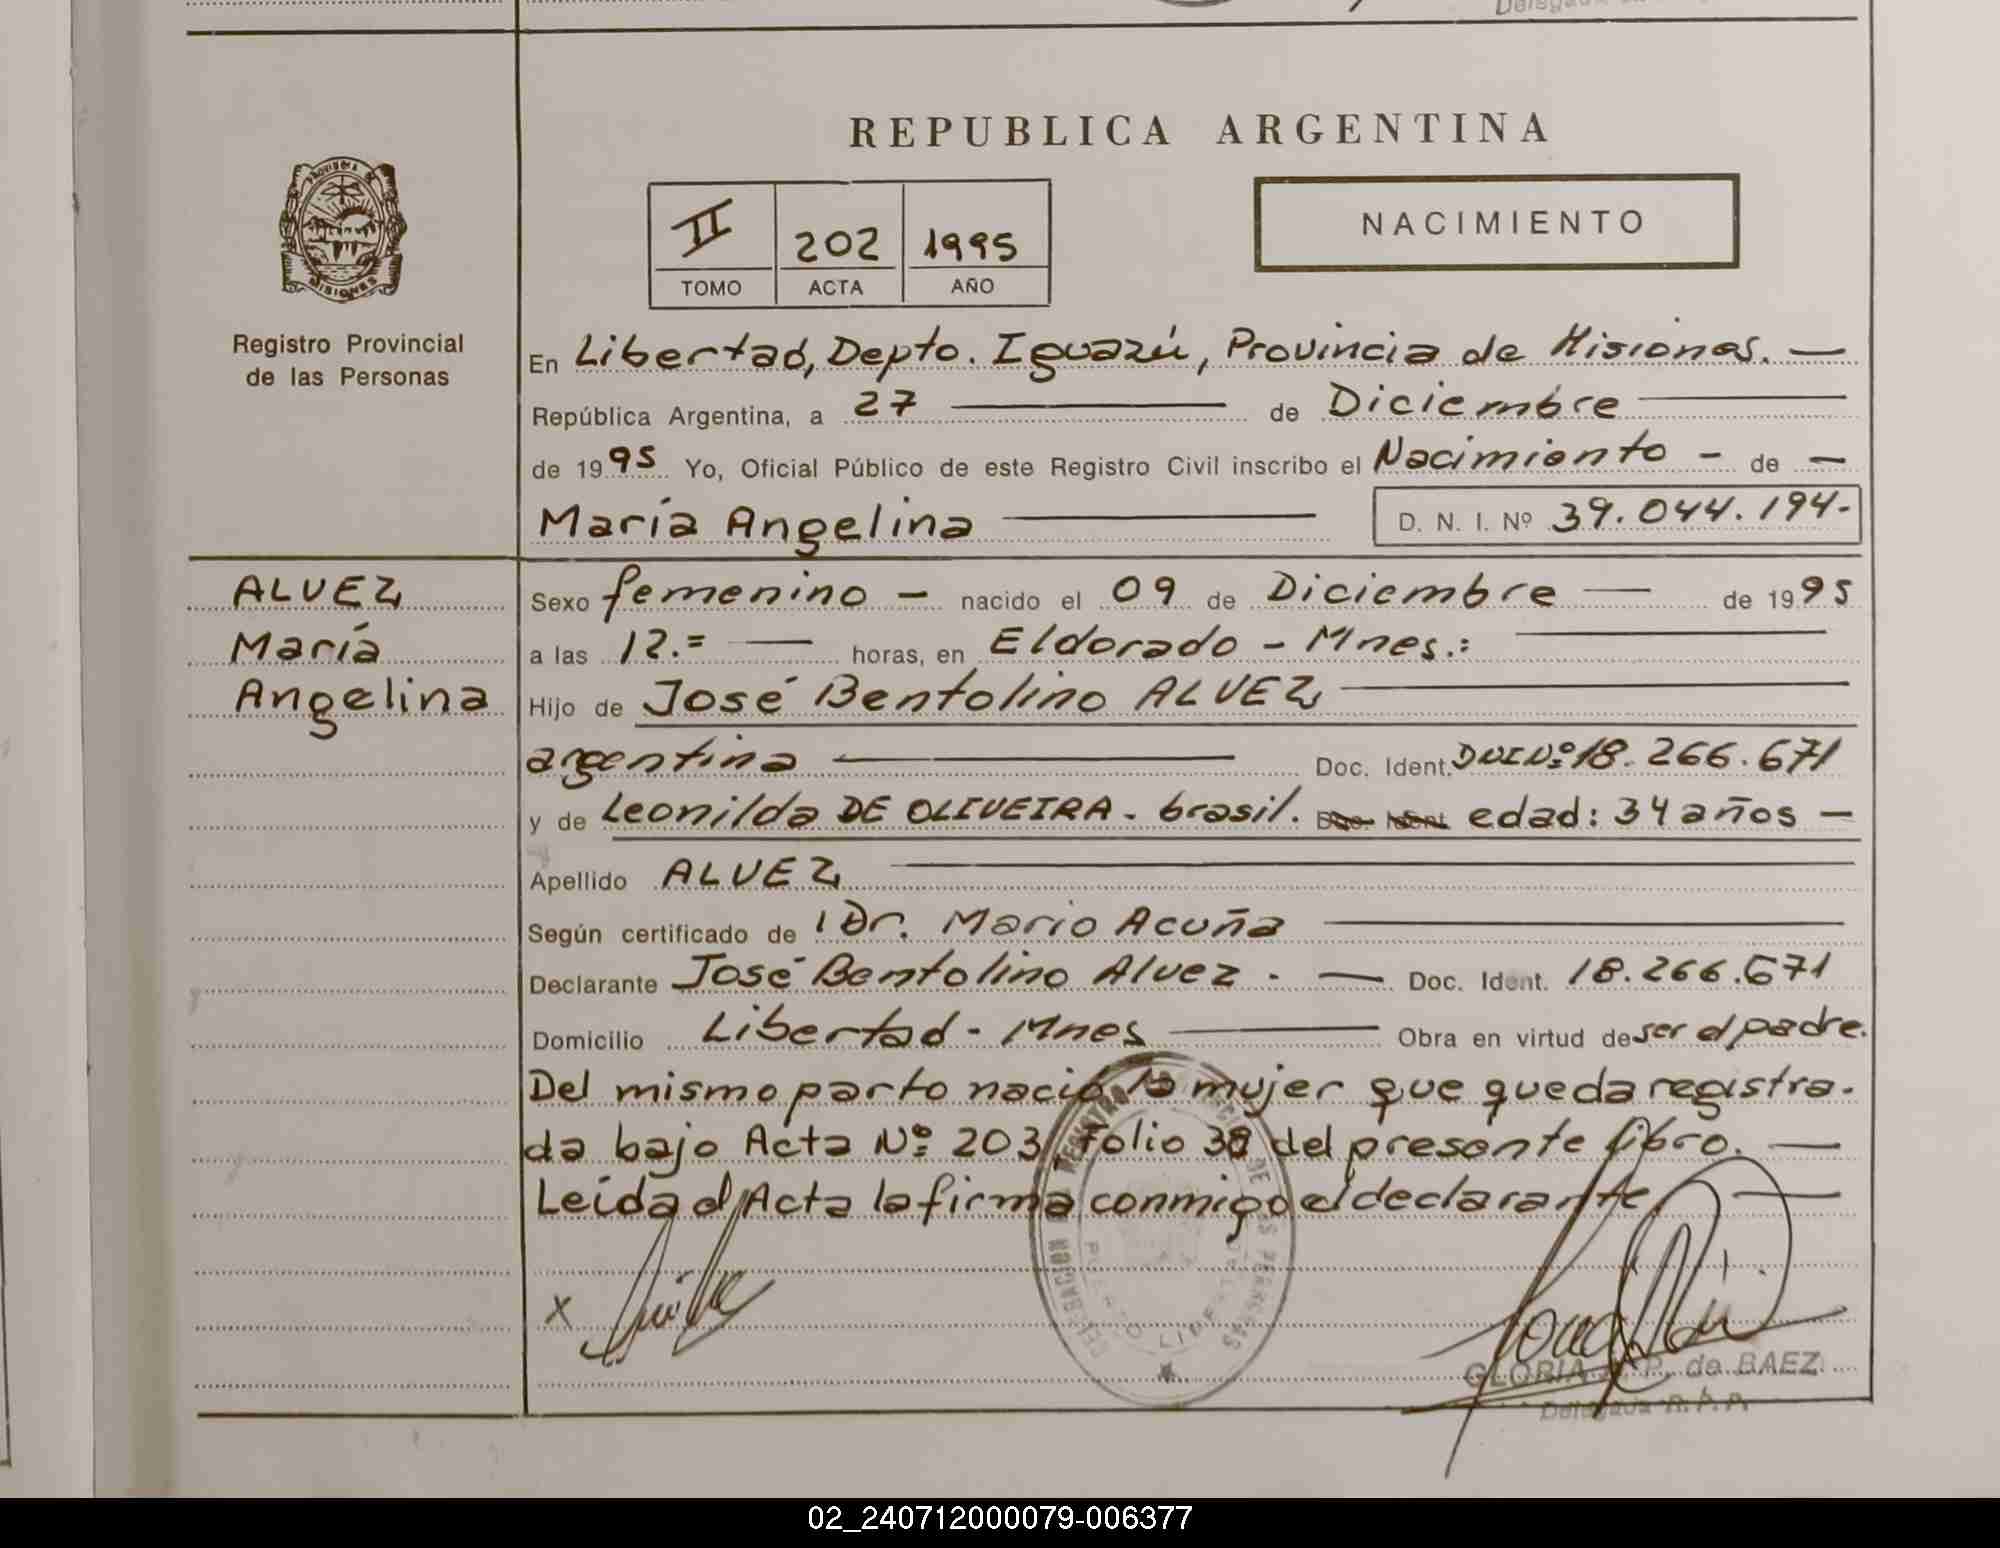 REPUBLICA ARGENTINA
II 202 1995
TOMO ACTA AÑO
NACIMIENTO
PROVINCIA DE
MISIONES
Registro Provincial
de las Personas
En Libertad, Depto. Iguazú, Provincia de Misiones. —
República Argentina, a 27 — de Diciembre —
de 1995 Yo, Oficial Público de este Registro Civil inscribo el Nacimiento - de —
María Angelina — D. N. I. Nº 39.044.194-
ALVEZ
María
Angelina
Sexo femenino — nacido el 09 de Diciembre — de 1995
a las 12.= — horas, en Eldorado - Mnes.: —
Hijo de José Bentolino ALVEZ —
argentina — Doc. Ident. DNI Nº 18.266.671
y de Leonilda DE OLIVEIRA - brasil. Doc. Ident edad: 34 años —
Apellido ALVEZ —
Según certificado de 1 Dr. Mario Acuña —
Declarante José Bentolino Alvez . — Doc. Ident. 18.266.671
Domicilio Libertad - Mnes — Obra en virtud de ser el padre.
Del mismo parto nació la mujer que queda registra-
da bajo Acta Nº 203, Folio del presente libro. —
Leída el Acta la firma conmigo el declarante. —
X
DELEGACION REGISTRO DE LAS PERSONAS
PUERTO LIBERTAD
GLORIA P. de BAEZ
Delegada R.P.P.
02_240712000079-006377